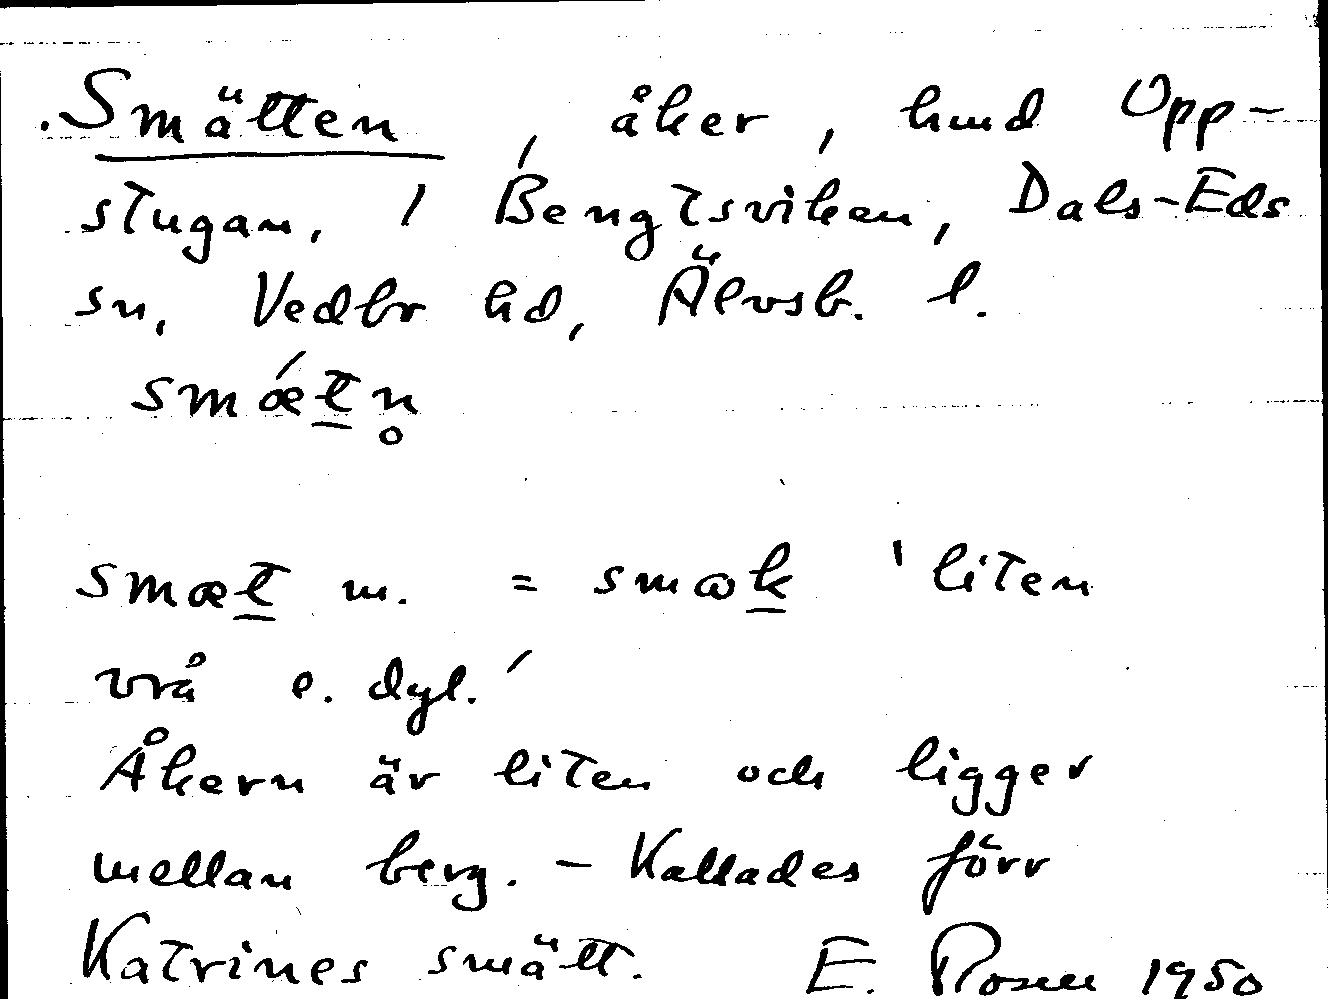 Smätten, åker, hmd Opp-
stugan, 1 Bengtsviken, Dals-Eds
sn, Vedbr hd, Älvsb. l.
smǽt̲n̥
smæt̲ m. = smωk̲ 'liten
vrå e. dyl.'
Åkern är liten och ligger
mellan berg. - Kallades förr
Katrines smätt. E. Rosell 1950